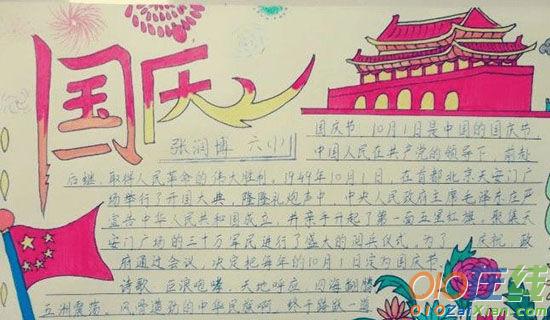 国庆
张润博 六(1)
国庆节,10月1日是中国的国庆节,
中国人民在共产党的领导下,前赴
后继,取得人民革命的伟大胜利,1949年10月1日,在首都北京天安门广
场举行了开国大典,隆隆礼炮声中,中央人民政府主席毛泽东庄严
宣告中华人民共和国成立,并亲手升起了第一面五星红旗,聚集天
安门广场的三十万军民进行了盛大的阅兵仪式,为了 庆祝,政
府通过会议,决定把每年的10月1日定为国庆节。
诗歌:巨浪咆哮,天地呼应,四海翻腾
五洲震荡,风雪遒劲的中华民族啊
010在线
ZaiXian.com